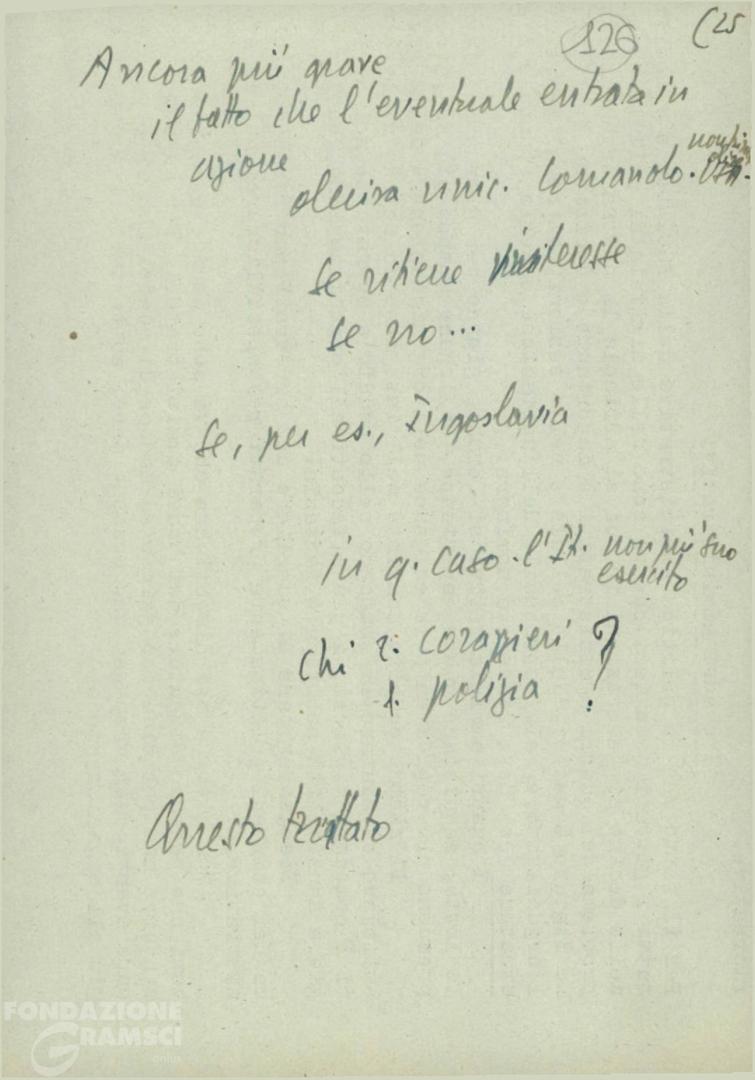 126
(25
Ancora più grave
il fatto che l'eventuale entrata in
azione
decisa unic. Comando.
se ritiene interesse
se no...
Se, per es., Iugoslavia
in q. caso. l'It. non più suo
esercito
chi i. corazzieri ?
l. polizia
Questo trattato
FONDAZIONE
GRAMSCI
onlus